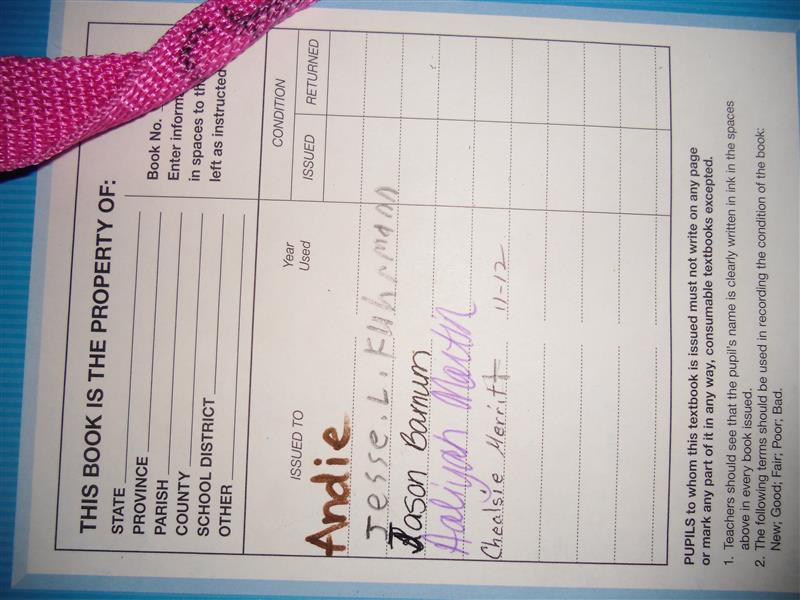 THIS BOOK IS THE PROPERTY OF:
STATE
PROVINCE
PARISH
COUNTY
SCHOOL DISTRICT
OTHER
Book No.
Enter inform
in spaces to th
left as instructed
ISSUED TO
Year
Used
CONDITION
ISSUED
RETURNED
Andie
Jesse. L. Kuhrmann
Jason Barnum
Aaliyah
Chealsie Merritt 11-12
PUPILS to whom this textbook is issued must not write on any page
or mark any part of it in any way, consumable textbooks excepted.
1. Teachers should see that the pupil's name is clearly written in ink in the spaces
above in every book issued.
2. The following terms should be used in recording the condition of the book:
New; Good; Fair; Poor; Bad.